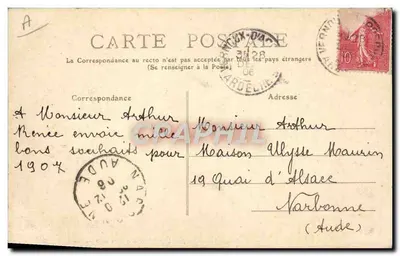 A
CARTE POSTALE
La Correspondance au recto n'est pas acceptée par tous les pays étrangers
(Se renseigner à la Poste)
Correspondance
Adresse
A Monsieur Arthur
Renée envoie mille
bons souhaits pour
1907
Monsieur Arthur
Maison Ulysse Maurin
19 Quai d'Alsace
Narbonne
(Aude)
ARDECHE
28
06
10
AUDE
CPAPHIL